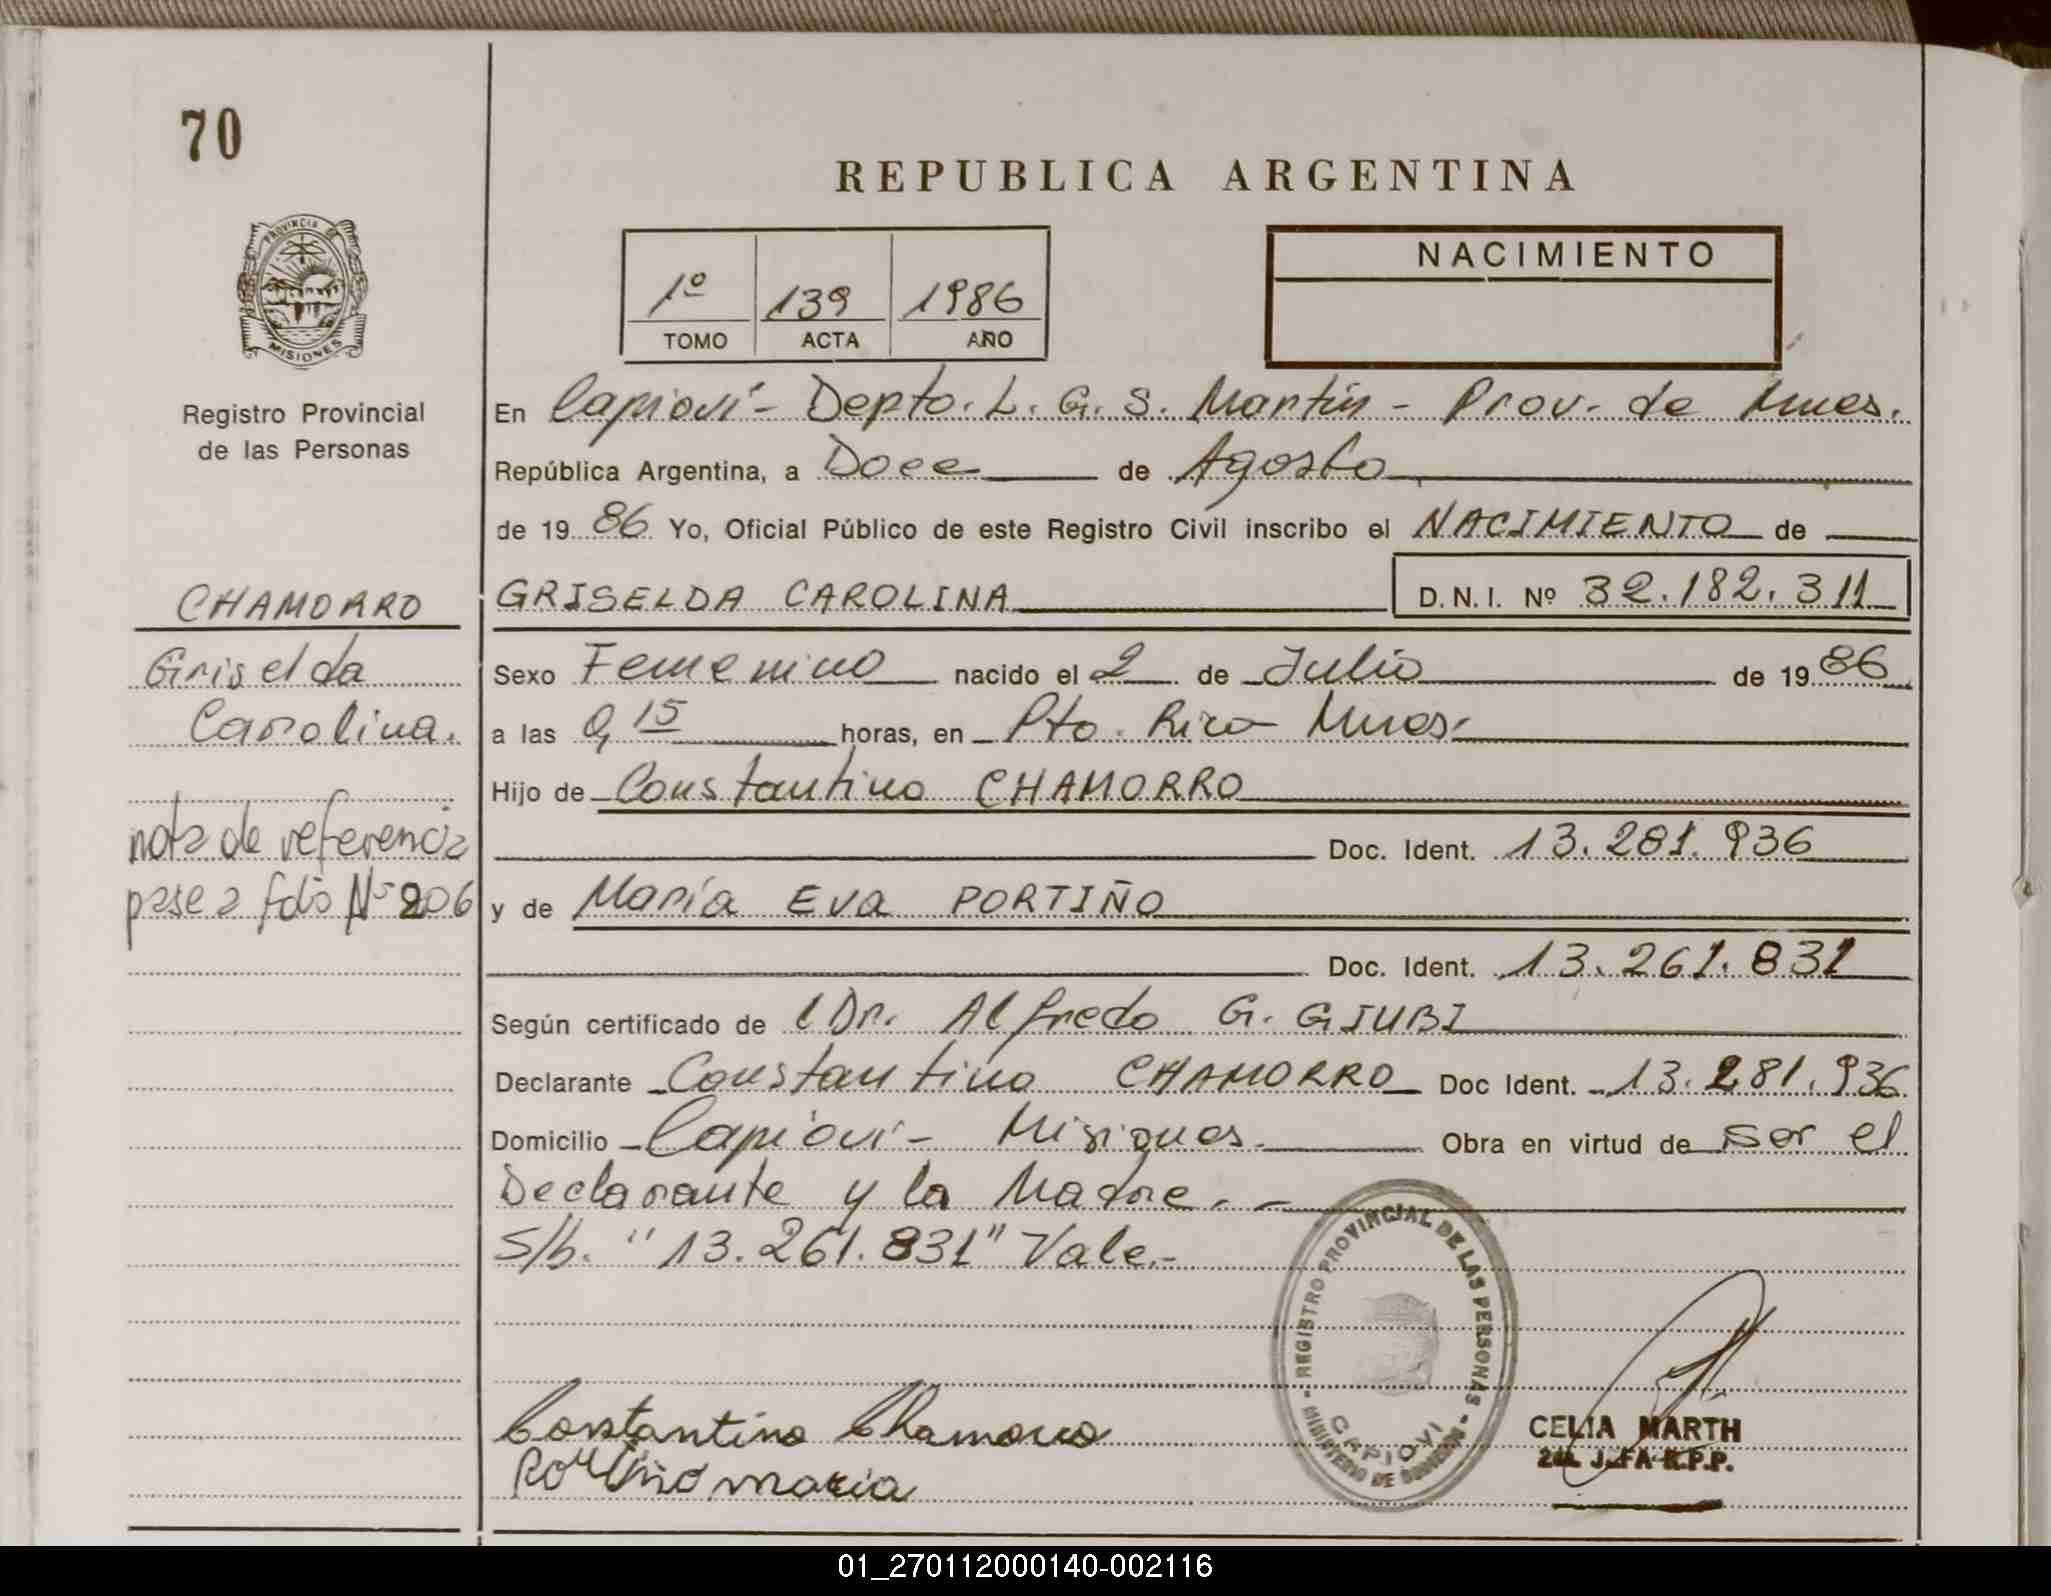 70
REPUBLICA ARGENTINA
PROVINCIA DE
MISIONES
NACIMIENTO
1º 139 1986
TOMO ACTA AÑO
Registro Provincial
de las Personas
En Capioví - Depto. L. G. S. Martín - Prov. de Mnes.
República Argentina, a Doce de Agosto
de 19 86 Yo, Oficial Público de este Registro Civil inscribo el NACIMIENTO de
CHAMORRO
GRISELDA CAROLINA D.N.I. Nº 32.182.311
Griselda
Carolina.
Sexo Femenino nacido el 2 de Julio de 19 86
a las 9,15 horas, en Pto. Rico Mnes.
Hijo de Constantino CHAMORRO
nota de referencia
pase a folio Nº 206
Doc. Ident. 13.281.936
y de María Eva PORTIÑO
Doc. Ident. 13.261.831
Según certificado de l Dr. Alfredo G. GIUBI
Declarante Constantino CHAMORRO Doc Ident. 13.281.936
Domicilio Capioví - Misiones. Obra en virtud de ser el
Declarante y la Madre. -
S/b. "13.261.831" Vale.-
REGISTRO PROVINCIAL DE LAS PERSONAS - MINISTERIO DE GOBIERNO -
CAPIOVI
Constantino Chamorro
Portiño maria
CELIA MARTH
J.FA R.P.P.
01_270112000140-002116